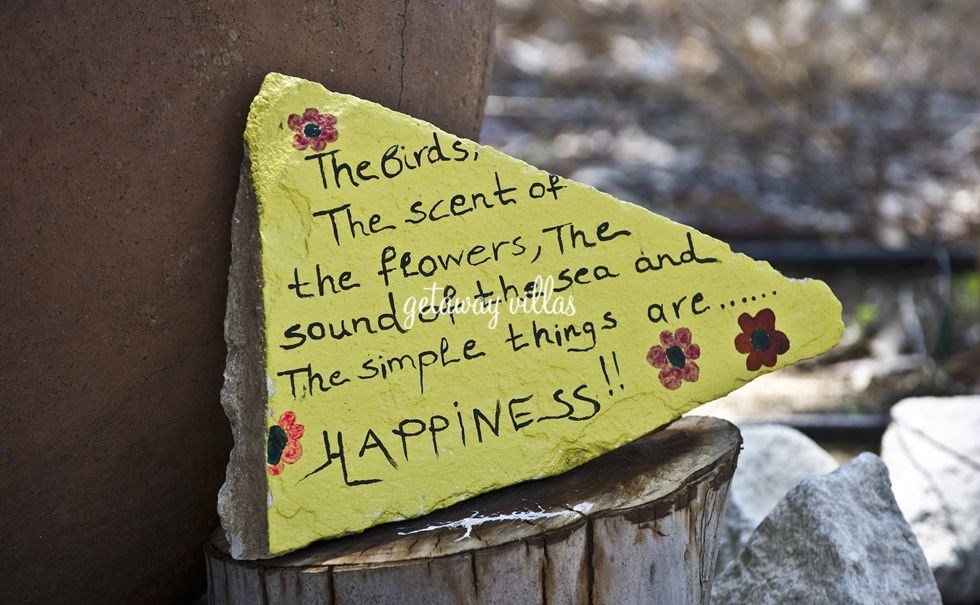 The Birds,
The scent of
the flowers, The
sound of the sea and
The simple things are......
HAPPiNESS!!
getaway villas